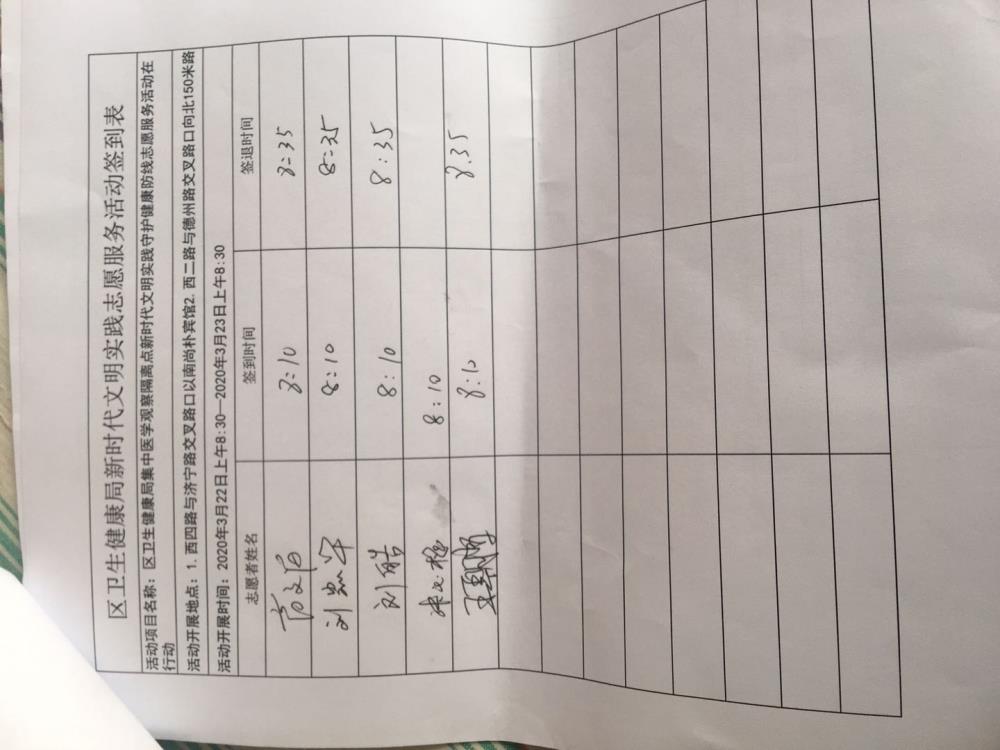 区卫生健康局新时代文明实践志愿服务活动签到表
活动项目名称：区卫生健康局集中医学观察隔离点新时代文明实践守护健康防线志愿服务活动在
行动
活动开展地点：1. 西四路与济宁路交叉路口以南尚朴宾馆2. 西二路与德州路交叉路口向北150米路
活动开展时间：2020年3月22日上午8:30—2020年3月23日上午8:30
志愿者姓名 签到时间 签退时间
8:10 8:35
刘 8:10 8:35
刘皓 8:10 8:35
8:10
8:10 8.35